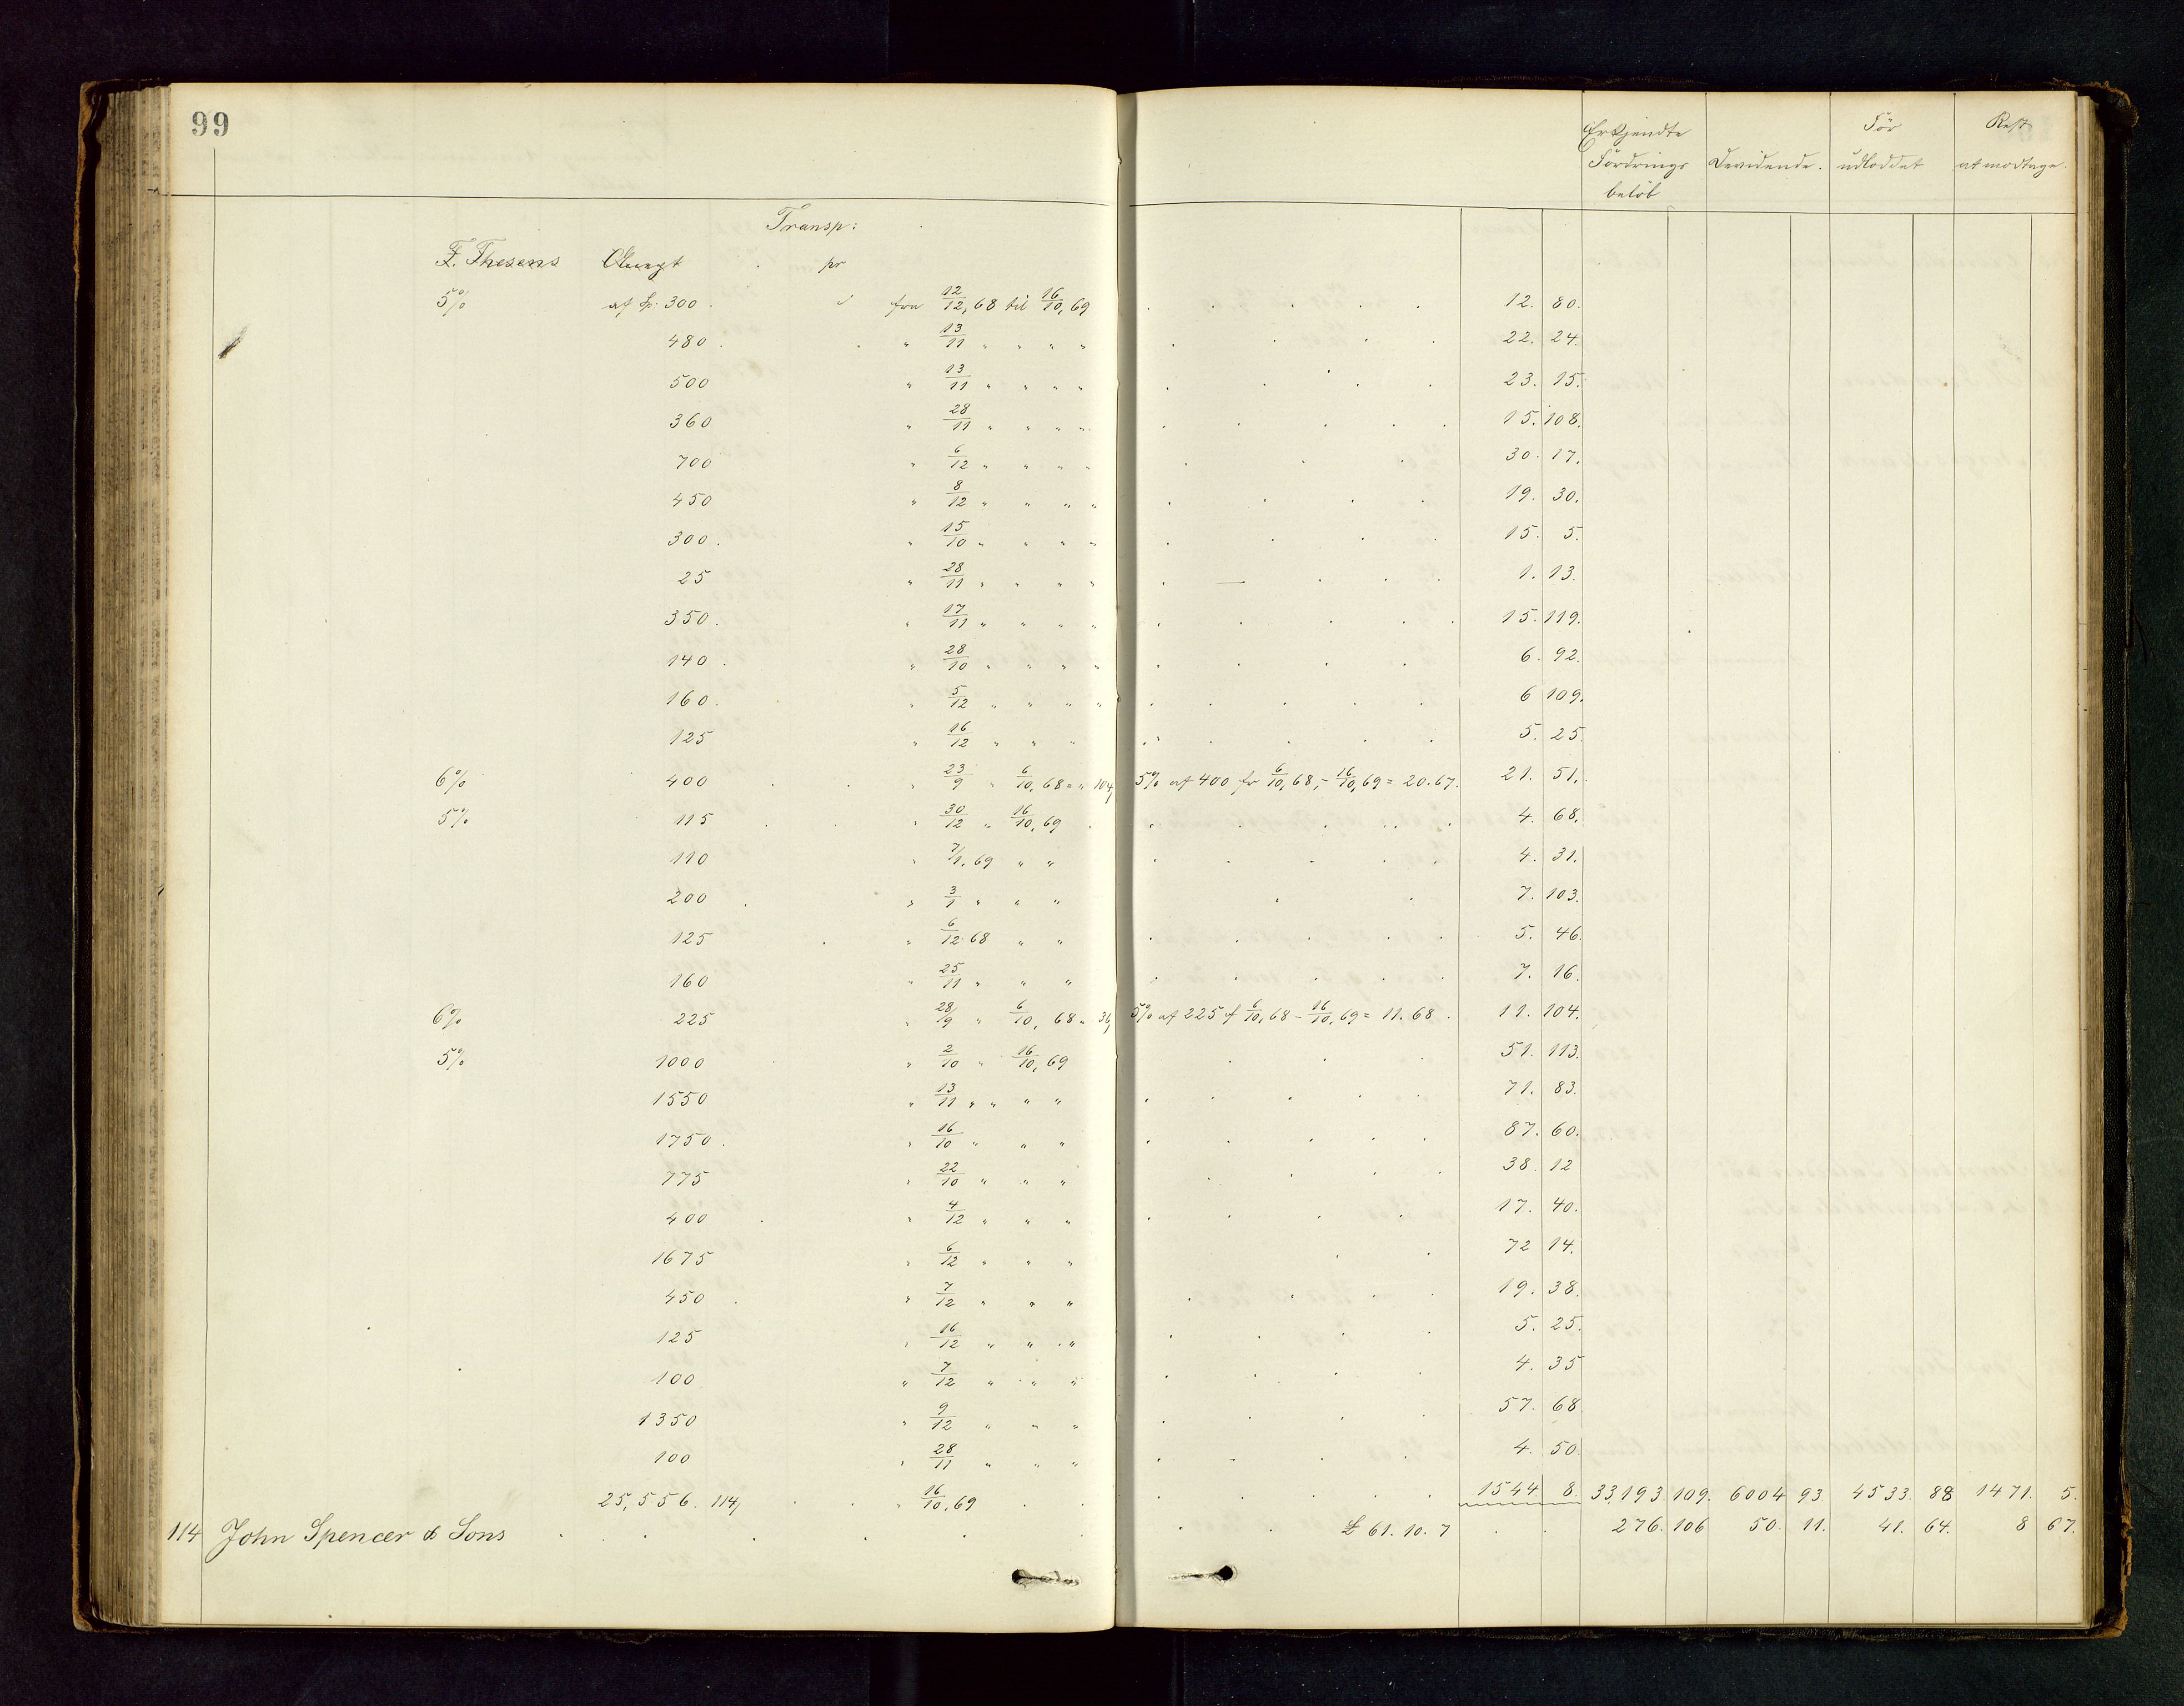 99
Erkjendte Fordrings beløb Devidende. Før udloddet Rest at modtage.
Transp:
F. Thesens Accept pr
5% af Sp. 300. fra 12/12, 68 til 16/10, 69 12. 80.
480. " 13/11 " " " " 22. 24.
500 " 13/11 " " " " 23. 15.
360 " 28/11 " " " " 15. 108.
700 " 6/12 " " " " 30. 17.
450 " 8/12 " " " " 19. 30.
300. " 15/10 " " " " 15. 5.
25 " 28/11 " " " " 1. 13.
350. " 17/11 " " " " 15. 119.
140. " 28/10 " " " " 6. 92.
160. " 5/12 " " " " 6 109.
125 " 16/12 " " " 5. 25.
6% 400 " 23/9 " 6/10, 68 = " 104, 5% af 400 fr 6/10, 68, - 16/10, 69 = 20. 67. 21. 51.
5% 115 " 30/12 " 16/10, 69 4. 68.
110 " 7/1, 69 " " 4. 31.
200 " 3/1 " " " 7. 103.
125 " 6/12 68 " " 5. 46.
160 " 25/11 " " " 7. 16.
6% 225 " 28/9 " 6/10, 68 " 36, 5% af 225 f 6/10, 68 - 16/10, 69 = 11. 68. 11. 104.
5% 1000 " 2/10 " 16/10, 69 51. 113.
1550 " 13/11 " " " " 71. 83.
1750. " 16/10 " " " 87. 60.
775 " 22/10 " " " 38. 12
400 " 4/12 " " " 17. 40.
1675 " 6/12 " " " 72 14.
450 " 7/12 " " " 19. 38.
125 " 16/12 " " " 5. 25.
100 " 7/12 " " " 4. 35
1350 " 9/12 " " " 57. 68
100 " 28/11 " " " 4. 50.
25,556. 114, " 16/10, 69 1544 8. 33,193 109. 6004 93. 4533. 88 1471. 5.
114 John Spencer & Sons £ 61. 10. 7 276. 106 50. 11. 41. 64. 8 67.